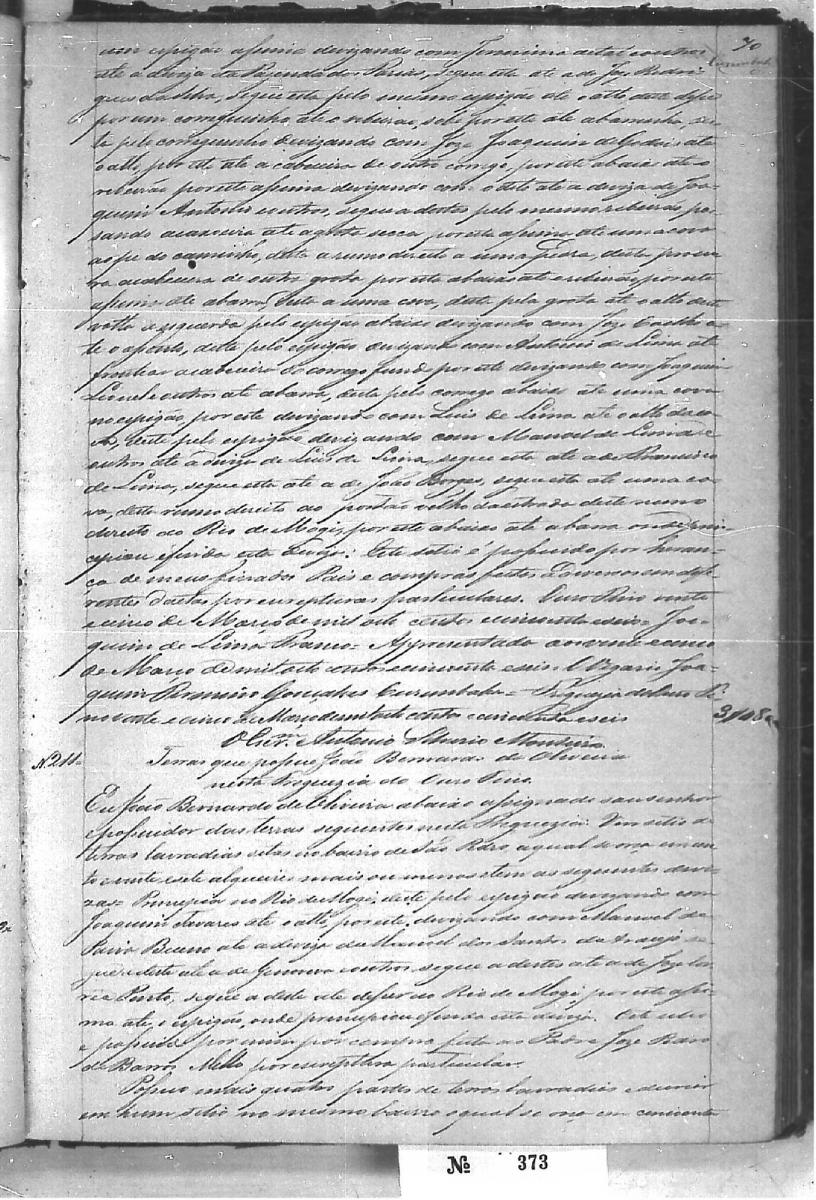 70
um espigão assima devizando com Jeronimo de tal e outros
até a deviza da Fazenda dos Farias, segue esta até a de Joze Rodri-
gues da Silva, segue esta pelo mesmo espigão até o alto deste desse
por um correguinho até o ribeirão, sobe por este até a barrinha, des-
te pelo correguinho devizando com Joze Joaquim de Godois até
o alto, por este até a cabeceira de outro corrego, por este abaixo até o
ribeirão por este assima devizando com o dito até a deviza de Joa-
quim Antonio e outros, segue a destes pelo mesmo ribeirão pas-
sando a caxoeira até a grota secca, por este assima até uma cova
ao pé do caminho, desta a rumo direito a uma Pedra, desta procura
a cabeceira de outra grota por esta abaixo até o ribeirão, por este
assima até a barra, desta a uma cova, deste pela grota até o alto deste
volta a esquerda pelo espigão abaixo devizando com Joze Coelho
te o aponte, deste pelo espigão devizando com Antonio de Lima até
frontear a cabeceira do corrego fundo por este devizando com Joaquim
e outros até a barra, desta pelo corrego abaixo até uma cova
no espigão, por este devizando com Luis de Lima até o alto da
deste pelo espigão devizando com Manoel de Lima e
outros até a deviza de Luis de Lima, segue esta até a de Francisco
de Lima, segue esta até a de João Borges, segue esta até uma co-
va, desta rumo direito ao portão velho da estrada deste rumo
direito ao Rio de Mogi, por este abaixo até a barra onde prin-
cipiou e finda esta deviza. Este sitio é possuido por heran-
ça de meus finados Pais e compras feitas a diversos em diffe-
rentes dactas por escripturas particulares. Ouro Fino vinte
e cinco de Março de mil oito centos e cincoenta e seis = Joa-
quim de Lima Franco = Appresentado aos vinte e cinco
de Março de mil oito centos e cincoenta e seis. O Vigario Joa-
quim Firmino Gonçalves Curimbaba = Freguezia de Ouro Fi-
no vinte e cinco de Março de mil oito centos e cincoenta e seis
O Escrm. Antonio Monteiro
Nº 211
Terras que possue João Bernardo de Oliveira
nesta Freguezia do Ouro Fino.
Eu João Bernardo de Oliveira abaixo assignado sou senhor
e possuidor das terras seguintes nesta Freguezia: Um sitio de
terras lavradias sitas no bairro de São Pedro a qual se orça em cen-
to e vinte e sete alqueires mais ou menos e tem as seguintes devi-
zas = Principia no Rio de Mogi, deste pelo espigão devizando com
Joaquim Tavares até o alto, por este devizando com Manoel de
Paiva Bueno até a deviza de Manoel dos Santos de Araujo, se-
gue a deste até a de Genoveva e outros, segue a destes até a de Joze Cor-
rea Pinto, segue a deste até descer ao Rio de Mogi por este assi-
ma até o espigão, onde principiou e finda esta deviza. Este sitio
é possuido por mim por compra feita ao Padre Joze Pedro
de Barros Mello por escriptura particular.
Possuo mais quatro partes de terras lavradias e
em hum sitio no mesmo bairro o qual se orça em cincoenta
Nº 373